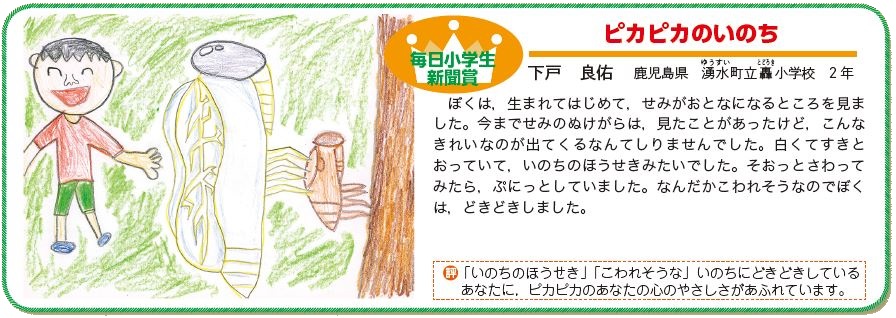 毎日小学生
新聞賞
ピカピカのいのち
下戸 良佑 鹿児島県 湧水町立轟小学校 2年
ゆうすい とどろき
ぼくは，生まれてはじめて，せみがおとなになるところを見ま
した。今までせみのぬけがらは，見たことがあったけど，こんな
きれいなのが出てくるなんてしりませんでした。白くてすきと
おっていて，いのちのほうせきみたいでした。そおっとさわって
みたら，ぷにっとしていました。なんだかこわれそうなのでぼく
は，どきどきしました。
評 「いのちのほうせき」「こわれそうな」いのちにどきどきしている
あなたに，ピカピカのあなたの心のやさしさがあふれています。